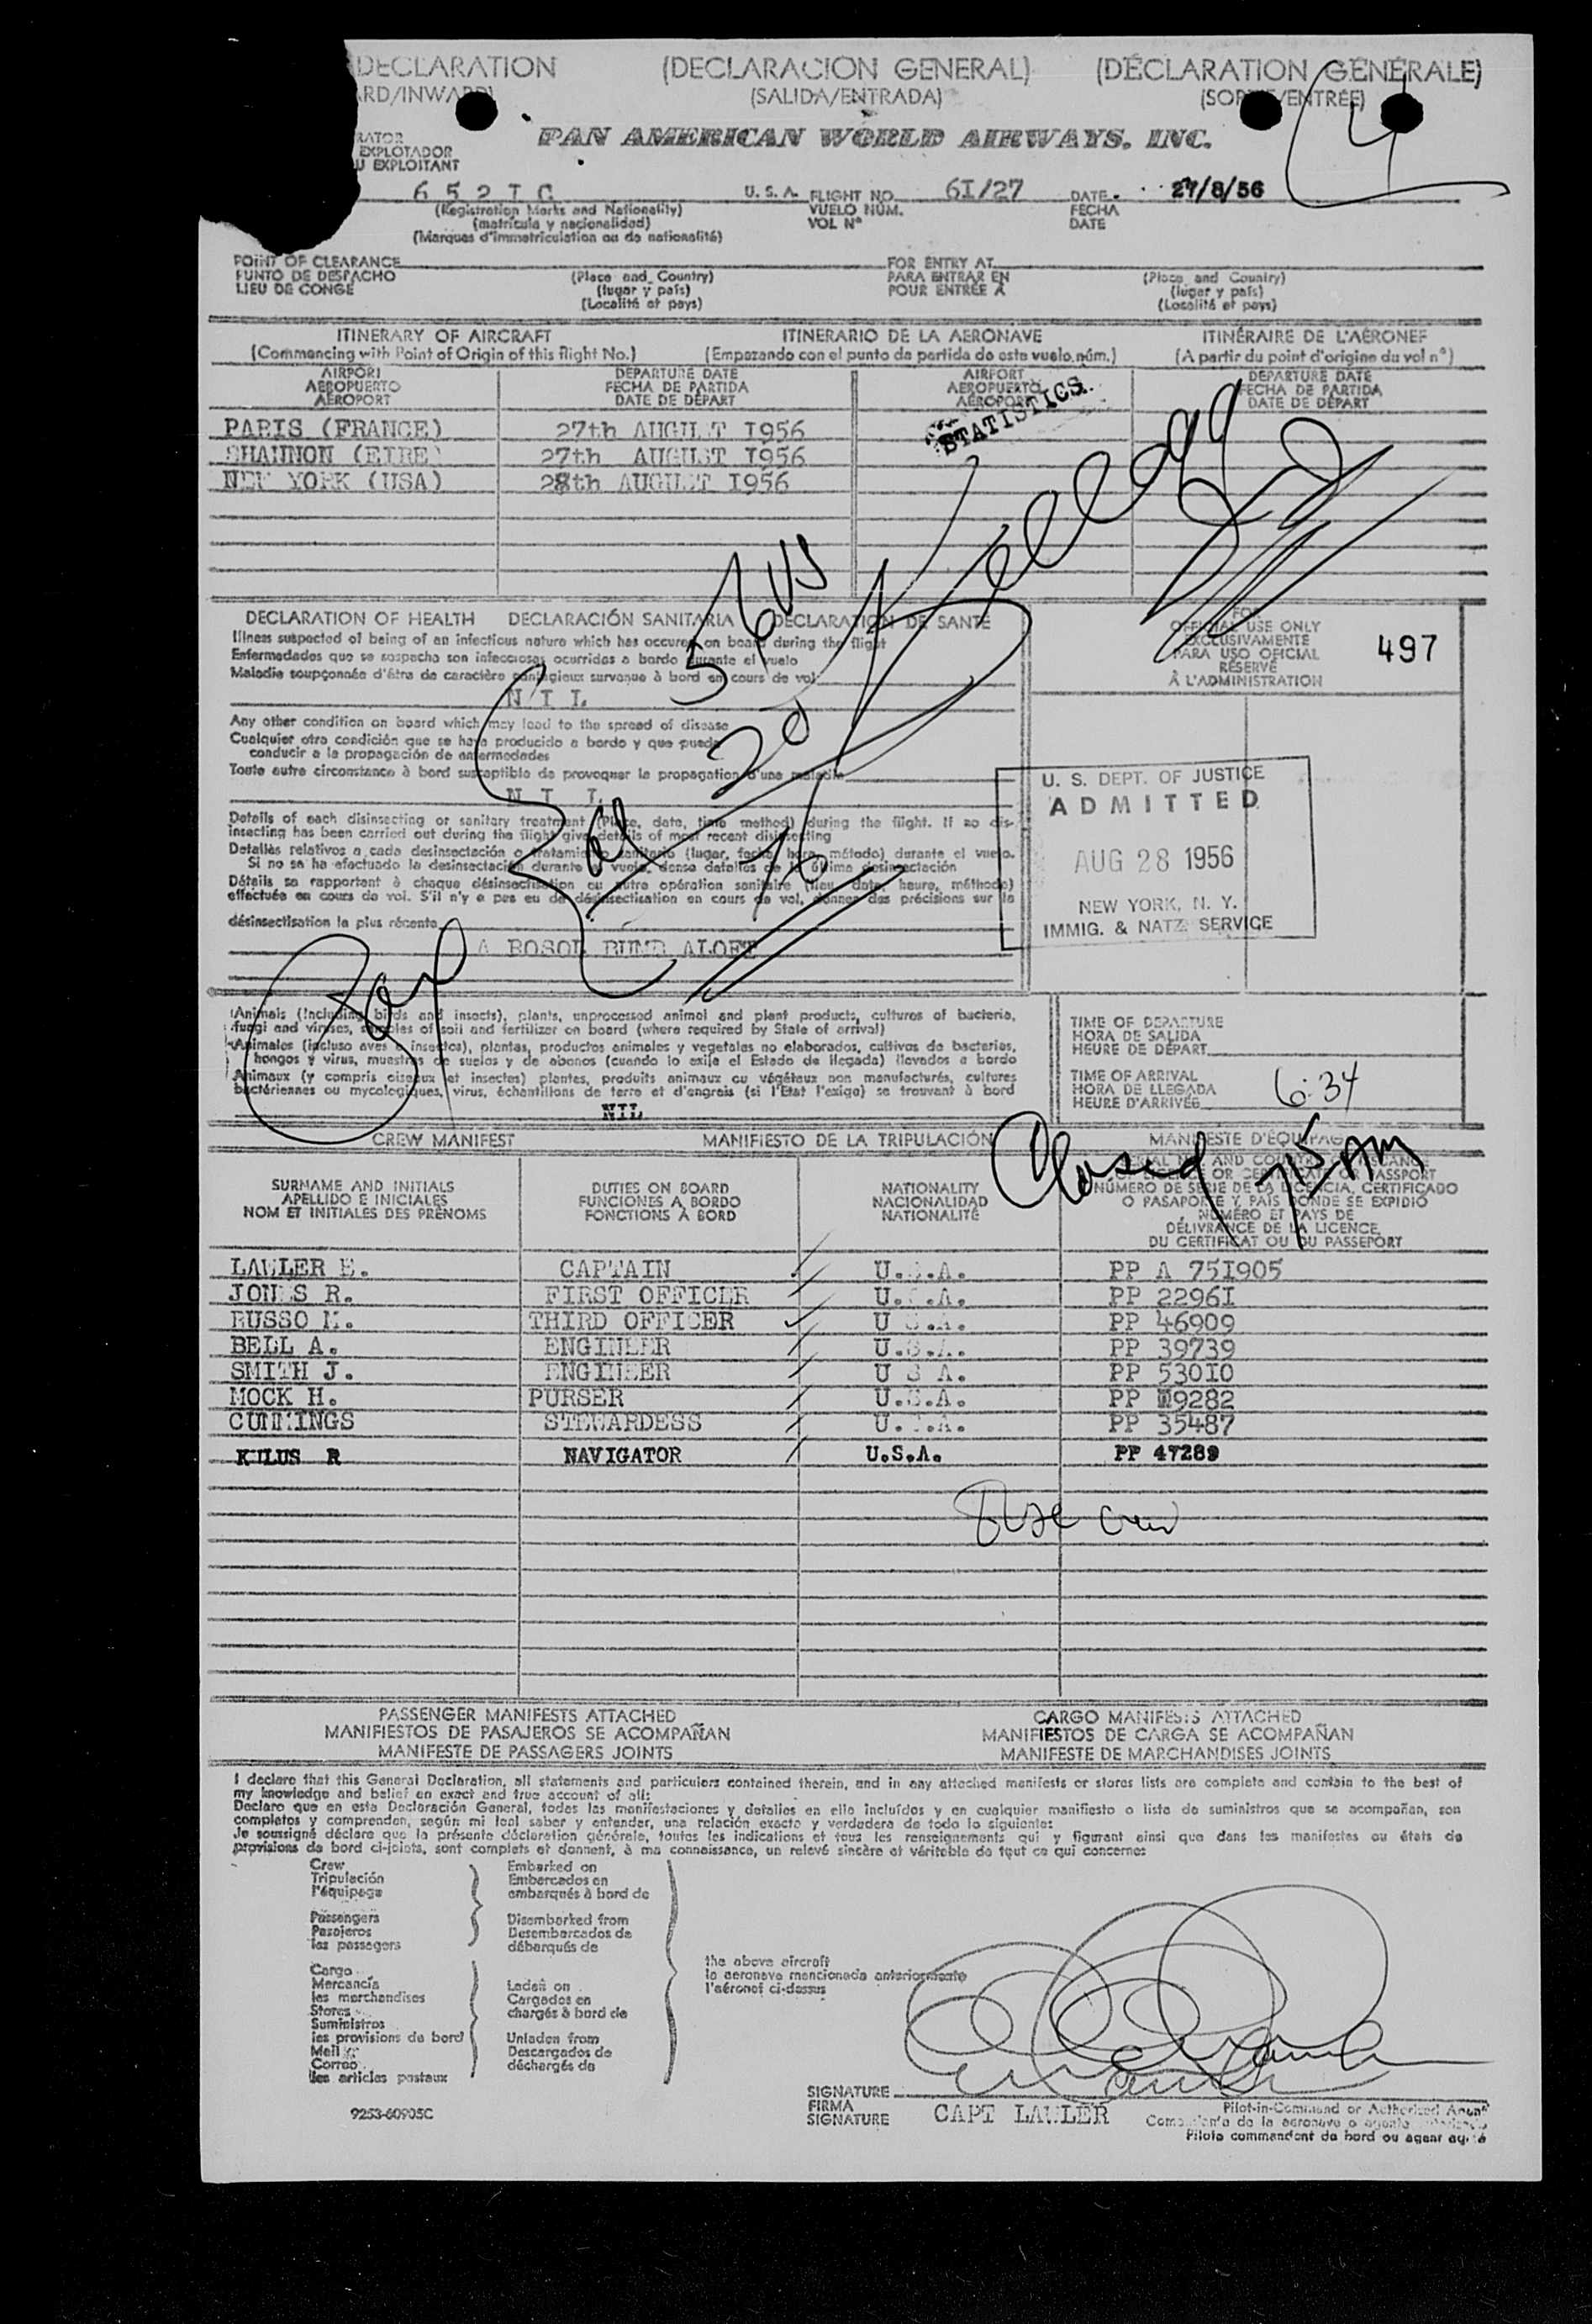 DECLARATION (DECLARACION GENERAL) (DÉCLARATION GÉNÉRALE)
(SALIDA/ENTRADA)
EXPLOTADOR
EXPLOITANT
PAN AMERICAN WORLD AIRWAYS, INC.
U. S. A. FLIGHT NO. 6I/27 DATE 27/8/56
(Registration Marks and Nationality) VUELO NÚM. FECHA
(matrícula y nacionalidad) VOL Nº DATE
(Marques d'immatriculation ou de nationalité)
POINT OF CLEARANCE FOR ENTRY AT
PUNTO DE DESPACHO (Place and Country) PARA ENTRAR EN (Place and Country)
LIEU DE CONGÉ (lugar y país) POUR ENTRÉE À (lugar y país)
(Localité et pays) (Localité et pays)
ITINERARY OF AIRCRAFT ITINERARIO DE LA AERONAVE ITINÉRAIRE DE L'AÉRONEF
(Commencing with Point of Origin of this flight No.) (Empezando con el punto de partida de este vuelo núm.) (A partir du point d'origine du vol nº)
AIRPORT DEPARTURE DATE AIRPORT DEPARTURE DATE
AEROPUERTO FECHA DE PARTIDA AEROPUERTO FECHA DE PARTIDA
AÉROPORT DATE DE DÉPART AÉROPORT DATE DE DÉPART
STATISTICS
PARIS (FRANCE) 27th AUGUST I956
SHANNON (EIRE) 27th AUGUST I956
NEW YORK (USA) 28th AUGUST I956
DECLARATION OF HEALTH DECLARACIÓN SANITARIA DECLARATION DE SANTÉ
Illness suspected of being of an infectious nature which has occured on board during the flight
Enfermedades que se sospecha son infecciosas ocurridas a bordo durante el vuelo
Maladie soupçonnée d'être de caractère contagieux survenue à bord en cours de vol
N I L
FOR
OFFICIAL USE ONLY
EXCLUSIVAMENTE
PARA USO OFICIAL
RÉSERVÉ
À L'ADMINISTRATION
497
Any other condition on board which may lead to the spread of disease
Cualquier otra condición que se haya producido a bordo y que pueda
conducir a la propagación de enfermedades
Toute autre circonstance à bord susceptible de provoquer la propagation d'une maladie
N I L
Details of each disinsecting or sanitary treatment (Place, date, time method) during the flight. If no dis-
insecting has been carried out during the flight give details of most recent disinsecting
Detalles relativos a cada desinsectación o tratamiento sanitario (lugar, fecha, hora, método) durante el vuelo.
Si no se ha efectuado la desinsectación durante el vuelo, dense detalles de la última desinsectación
Détails se rapportant à chaque désinsectisation ou autre opération sanitaire (lieu, date, heure, méthode)
effectuée en cours de vol. S'il n'y a pas eu de désinsectisation en cours de vol, donner des précisions sur la
désinsectisation la plus récente
A ROSOL BUMB ALOFT
U. S. DEPT. OF JUSTICE
ADMITTED
AUG 28 1956
NEW YORK, N. Y.
IMMIG. & NATZ. SERVICE
Animals (Including birds and insects), plants, unprocessed animal and plant products, cultures of bacteria,
fungi and viruses, samples of soil and fertilizer on board (where required by State of arrival)
Animales (incluso aves e insectos), plantas, productos animales y vegetales no elaborados, cultivos de bacterias,
hongos y virus, muestras de suelos y de abonos (cuando lo exija el Estado de llegada) llevados a bordo
Animaux (y compris oiseaux et insectes) plantes, produits animaux ou végétaux non manufacturés, cultures
bactériennes ou mycologiques, virus, échantillons de terre et d'engrais (si l'État l'exige) se trouvant à bord
NIL
TIME OF DEPARTURE
HORA DE SALIDA
HEURE DE DÉPART
TIME OF ARRIVAL
HORA DE LLEGADA
HEURE D'ARRIVÉE 6:34
Closed 715 AM
CREW MANIFEST MANIFIESTO DE LA TRIPULACIÓN MANIFESTE D'ÉQUIPAGE
SURNAME AND INITIALS DUTIES ON BOARD NATIONALITY
APELLIDO E INICIALES FUNCIONES A BORDO NACIONALIDAD
NOM ET INITIALES DES PRÉNOMS FONCTIONS À BORD NATIONALITÉ
NÚMERO DE SERIE DE LA LICENCIA, CERTIFICADO
O PASAPORTE Y PAÍS DONDE SE EXPIDIÓ
NUMÉRO ET PAYS DE
DÉLIVRANCE DE LA LICENCE
DU CERTIFICAT OU DU PASSEPORT
LAWLER E. CAPTAIN U.S.A. PP A 75I905
JONES R. FIRST OFFICER U.S.A. PP 2296I
RUSSO M. THIRD OFFICER U.S.A. PP 46909
BELL A. ENGINEER U.S.A. PP 39739
SMITH J. ENGINEER U S A. PP 530I0
MOCK H. PURSER U.S.A. PP 9282
CUMMINGS STEWARDESS U.S.A. PP 35487
KILUS R NAVIGATOR U.S.A. PP 47289
PASSENGER MANIFESTS ATTACHED CARGO MANIFESTS ATTACHED
MANIFIESTOS DE PASAJEROS SE ACOMPAÑAN MANIFIESTOS DE CARGA SE ACOMPAÑAN
MANIFESTE DE PASSAGERS JOINTS MANIFESTE DE MARCHANDISES JOINTS
I declare that this General Declaration, all statements and particulars contained therein, and in any attached manifests or stores lists are complete and contain to the best of
my knowledge and belief an exact and true account of all:
Declaro que en esta Declaración General, todas las manifestaciones y detalles en ella incluídos y en cualquier manifiesto o lista de suministros que se acompañan, son
completos y comprenden, según mi leal saber y entender, una relación exacta y verdadera de todo lo siguiente:
Je soussigné déclare que la présente déclaration générale, toutes les indications et tous les renseignements qui y figurant ainsi que dans les manifestes ou états de
provisions de bord ci-joints, sont complets et donnent, à ma connaissance, un relevé sincère et véritable de tout ce qui concerne:
Crew Embarked on
Tripulación Embarcados en
l'équipage embarqués à bord de
Passengers Disembarked from
Pasajeros Desembarcados de
les passagers débarqués de
the above aircraft
la aeronave mencionada anteriormente
l'aéronef ci-dessus
Cargo
Mercancía Laden on
les marchandises Cargados en
Stores chargés à bord de
Suministros
les provisions de bord Unladen from
Mail Descargados de
Correo déchargés de
les articles postaux
9253-60905C
SIGNATURE
FIRMA
SIGNATURE
CAPT LAWLER
Pilot-in-Command or Authorized Agent
Comandante de la aeronave o agente
Pilote commandant de bord ou agent agréé